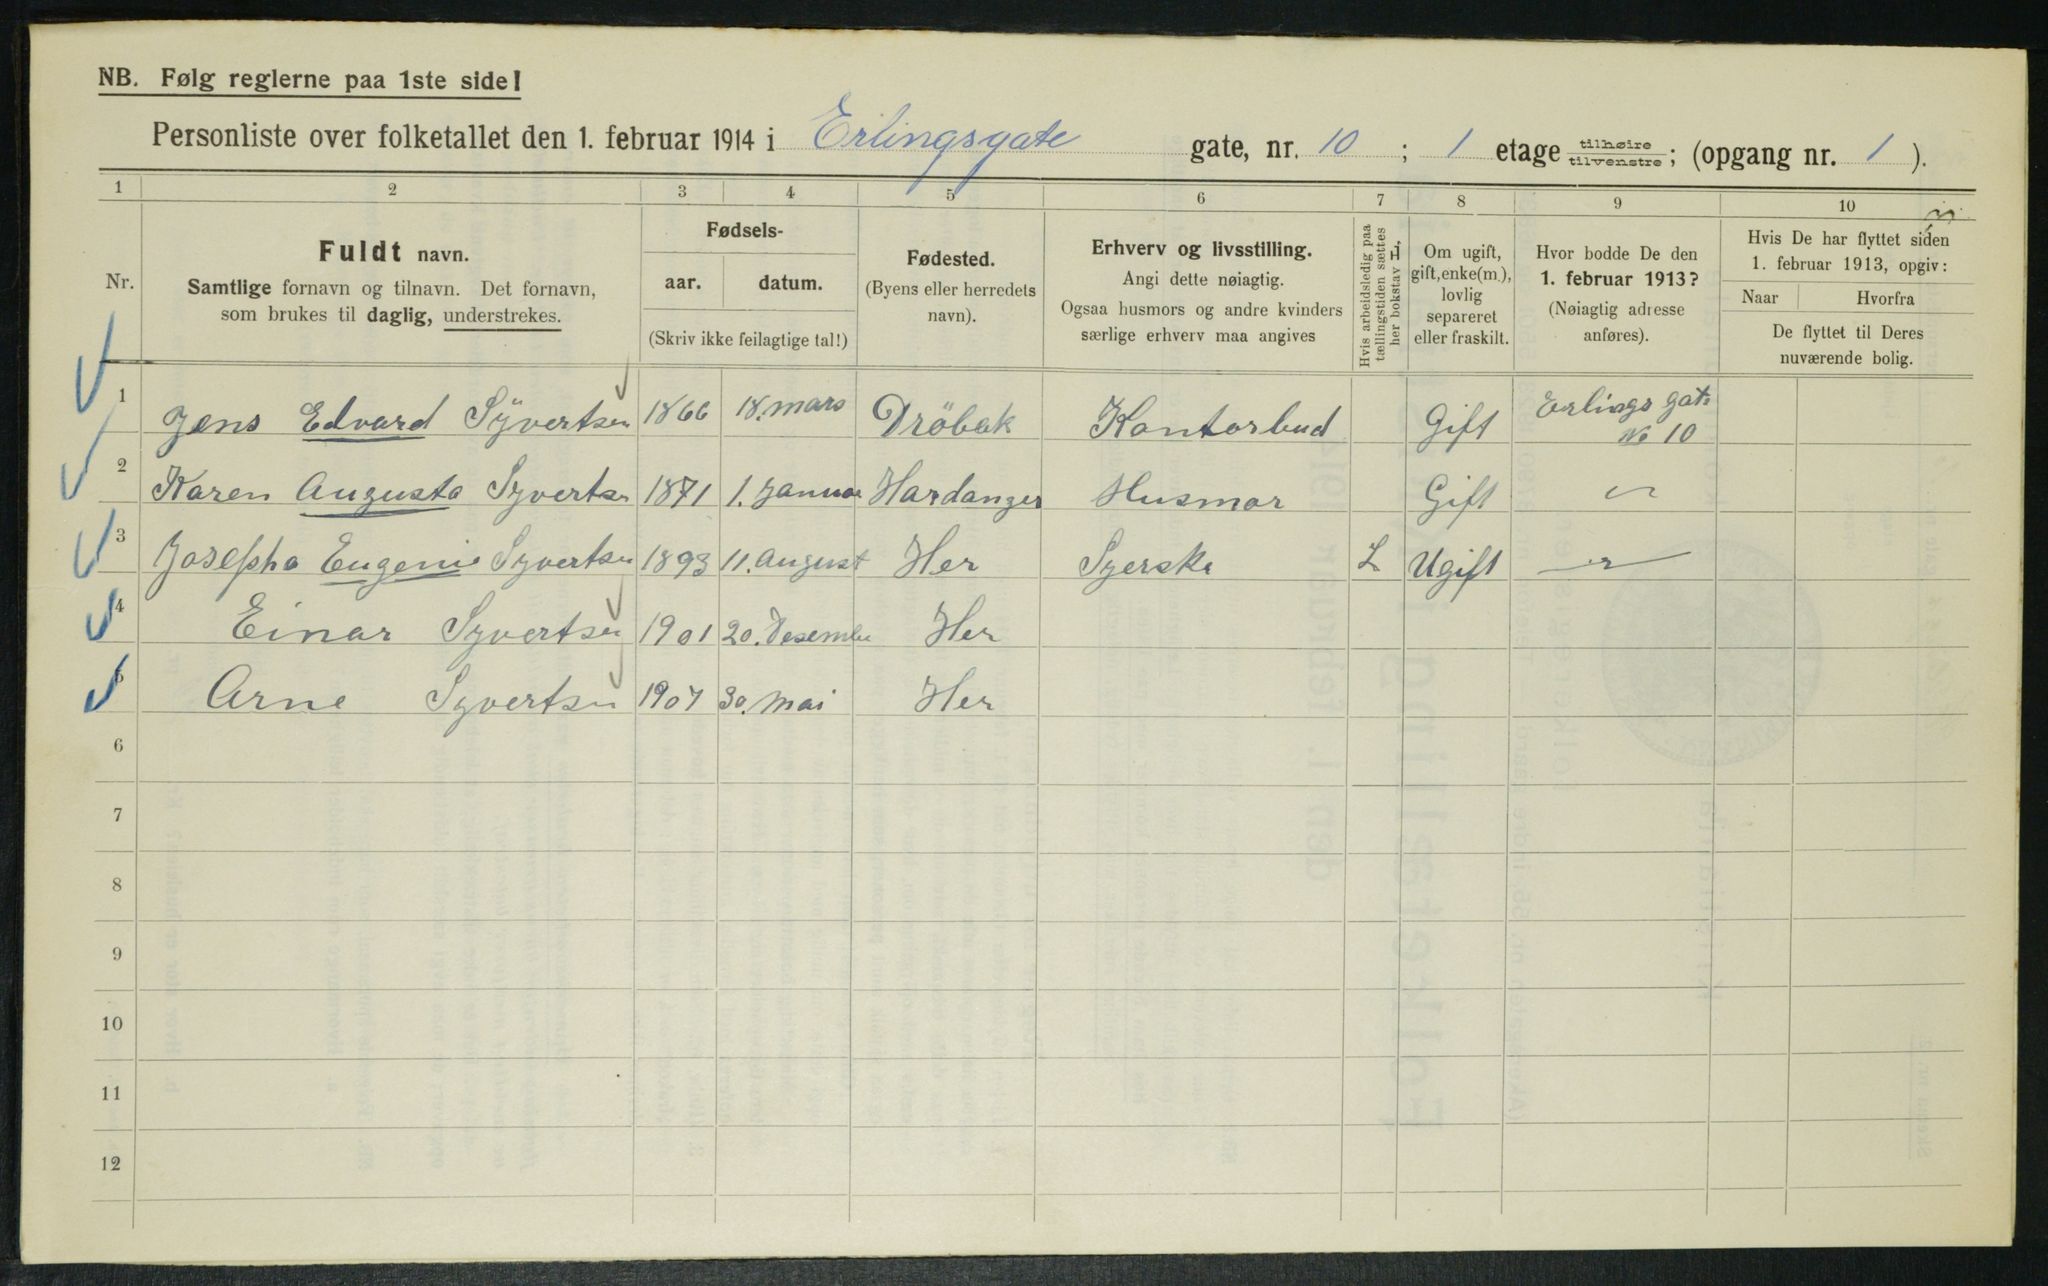 NB. Følg reglerne paa 1ste side!
Personliste over folketallet den 1. februar 1914 i Erlingsgate gate, nr. 10 ; 1 etage tilhøire tilvenstre ; (opgang nr. 1 ).
1 2 3 4 5 6 7 8 9 10
Nr.
Fuldt navn.
Samtlige fornavn og tilnavn. Det fornavn,
som brukes til daglig, understrekes.
Fødsels-
aar. datum.
(Skriv ikke feilagtige tal!)
Fødested.
(Byens eller herredets
navn).
Erhverv og livsstilling.
Angi dette nøiagtig.
Ogsaa husmors og andre kvinders
særlige erhverv maa angives
Hvis arbeidsledig paa
tællingstiden sættes
her bokstav L.
Om ugift,
gift, enke(m.),
lovlig
separeret
eller fraskilt.
Hvor bodde De den
1. februar 1913?
(Nøiagtig adresse
anføres).
Hvis De har flyttet siden
1. februar 1913, opgiv:
Naar Hvorfra
De flyttet til Deres
nuværende bolig.
1 Jens Edvard Sÿvertsen 1866 18. mars Dröbak Kontorbud Gift Erlings gate
No 10
2 Karen Augusta Syvertsen 1871 1. Januar Hardanger Husmor Gift "
3 Josefpha Eugenie Syvertsen 1893 11. August Her Syerske L Ugift "
4 Einar Syvertsen 1901 20. Desember Her
5 Arne Syvertsen 1907 30. Mai Her
6
7
8
9
10
11
12